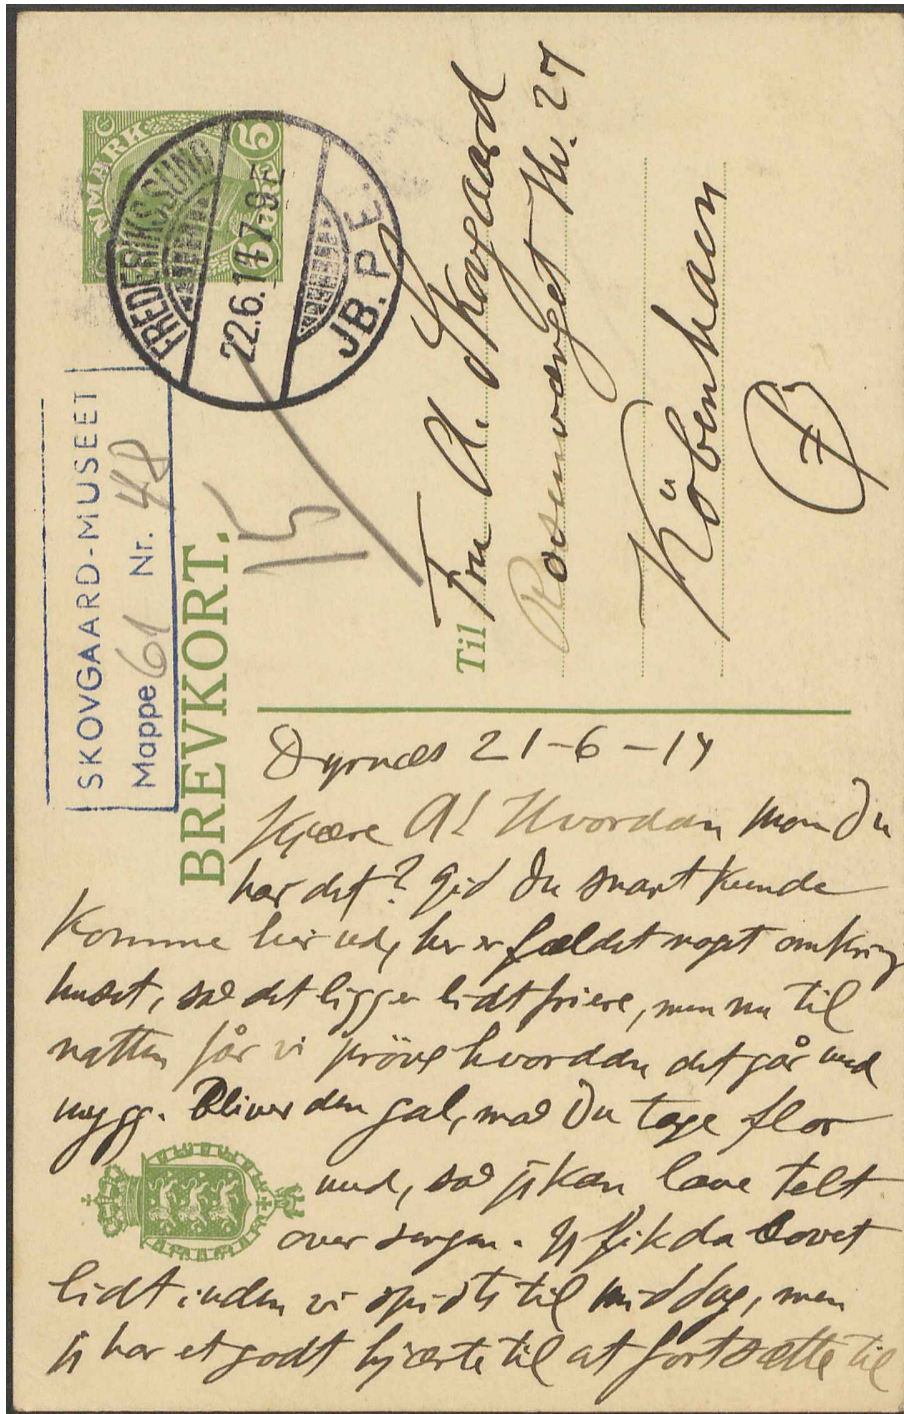 DANMARK
5
FREDERIKSSUND
22.6.14 7-9E
JB.P.E.
SKOVGAARD-MUSEET
Mappe 61 Nr. 48
BREVKORT.
15
Til Fru A. Skovgaard
Rosenvænget Hv. 27
København
Ø
Dyrnæs 21-6-14
Kjære A! Hvordan mon Du
har det? gid Du snart kunde
komme her ud, her er fældet noget omkring
huset, saa det ligger lidt friere, men nu til
natten får vi prøve hvordan det går med
mygg. Bliver den gal, maa Du tage flor
med, saa jeg kan lave telt
over sengen. Jeg fik da sovet
lidt inden vi spiste til middag, men
jeg har et godt hjærte til at fortsætte til